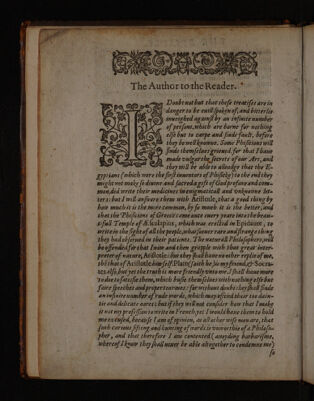 The Author to the Reader.
I Doubt not but that these treatises are in
danger to be euill spoken of, and bitterlie
inueighed against by an infinite number
of persons, which are borne for nothing
else but to carpe and finde fault, before
they be well knowne. Some Phisitions will
finde themselues grieued for that I haue
made vulgar the secrets of our Art, and
they will be able to alleadge that the E-
gyptians (which were the first inuenters of Phisicke) to the end they
might not make so diuine and sacred a gift of God profane and com-
mon, did write their medicines in enigmaticall and vnknowne let-
ters: but I will answere them with Aristotle, that a good thing by
how much it is the more common, by so much it is the better, and
that the Phisitions of Greece came once euery yeare into the beau-
tifull Temple of Æsculapius, which was erected in Epidaure, to
write in the sight of all the people, what soeuer rare and strange thing
they had obserued in their patients. The naturall Philosophers, will
be offended for that I vnite and them
preter of nature, Aristotle: but they shall haue no other replie of me,
tes also, but yet the truth is more friendly vnto me. I shall haue more
to doe to satisfie them, which busie themselues with nothing else but
faire speeches and proper tearmes: for without doubt they shall finde
an infinite number of rude words, which may offend their too dain-
tie and delicate eares: but if they will not consider how that I make
it not my profession to write in French, yet I would haue them to hold
me excused, because I am of opinion, as all other wise men are, that
such curious sifting and hunting of words is vnworthie of a Philoso-
pher, and that therefore I am contented (auoyding barbarisme,
whereof I know they shall neuer be able altogether to condemne me)
so